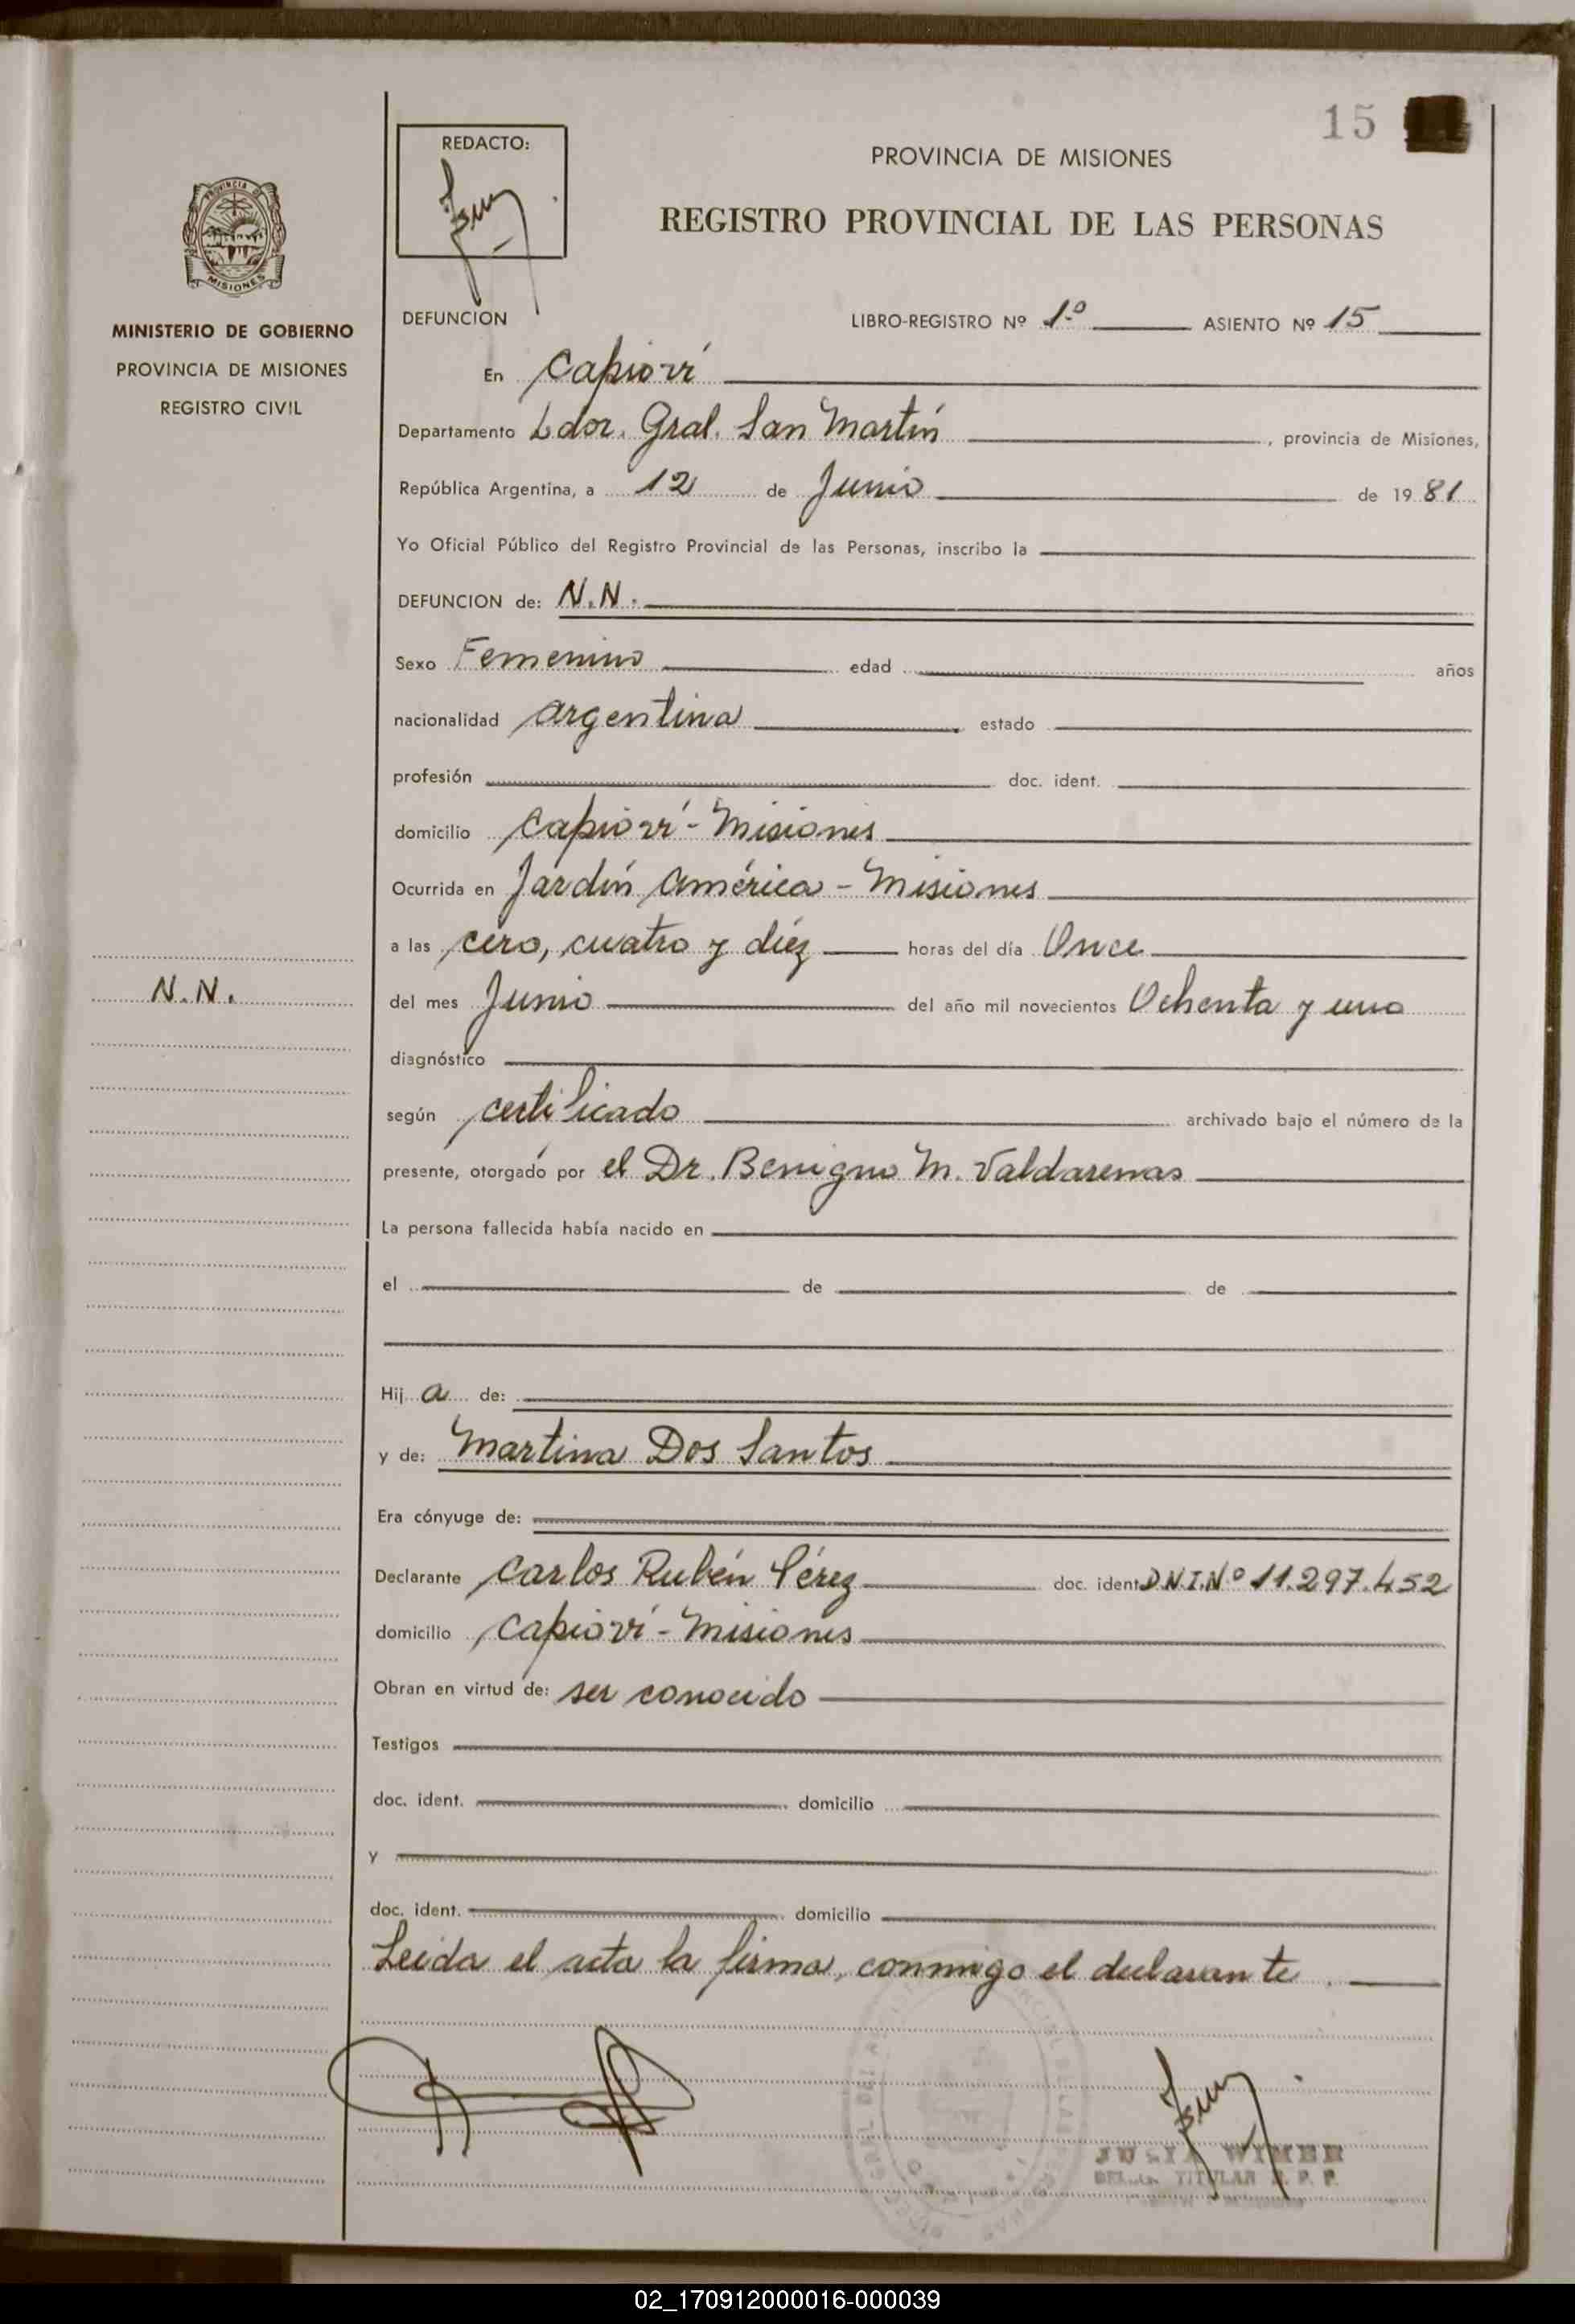 15
REDACTO:
PROVINCIA DE MISIONES
REGISTRO PROVINCIAL DE LAS PERSONAS
PROVINCIA DE
MISIONES
MINISTERIO DE GOBIERNO
PROVINCIA DE MISIONES
REGISTRO CIVIL
DEFUNCION LIBRO-REGISTRO Nº 1º ASIENTO Nº 15
En Capioví
Departamento Ldor. Gral. San Martín, provincia de Misiones,
República Argentina, a 12 de Junio de 1981
Yo Oficial Público del Registro Provincial de las Personas, inscribo la
DEFUNCION de: N.N.
Sexo Femenino edad años
nacionalidad argentina estado
profesión doc. ident.
domicilio Capioví - Misiones
Ocurrida en Jardín América - Misiones
a las cero, cuatro y diéz horas del día Once
N.N.
del mes Junio del año mil novecientos Ochenta y uno
diagnóstico
según certificado archivado bajo el número de la
presente, otorgado por el Dr. Benigno M. Valdarenas
La persona fallecida había nacido en
el de de
Hij a de:
y de: Martina Dos Santos
Era cónyuge de:
Declarante Carlos Rubén Pérez doc. ident. D.N.I.Nº 11.297.452
domicilio Capioví - Misiones
Obran en virtud de: ser conocido
Testigos
doc. ident. domicilio
y
doc. ident. domicilio
Leida el acta la firma, conmigo el declarante.
WIMER
TITULAR R. P. P.
02_170912000016-000039